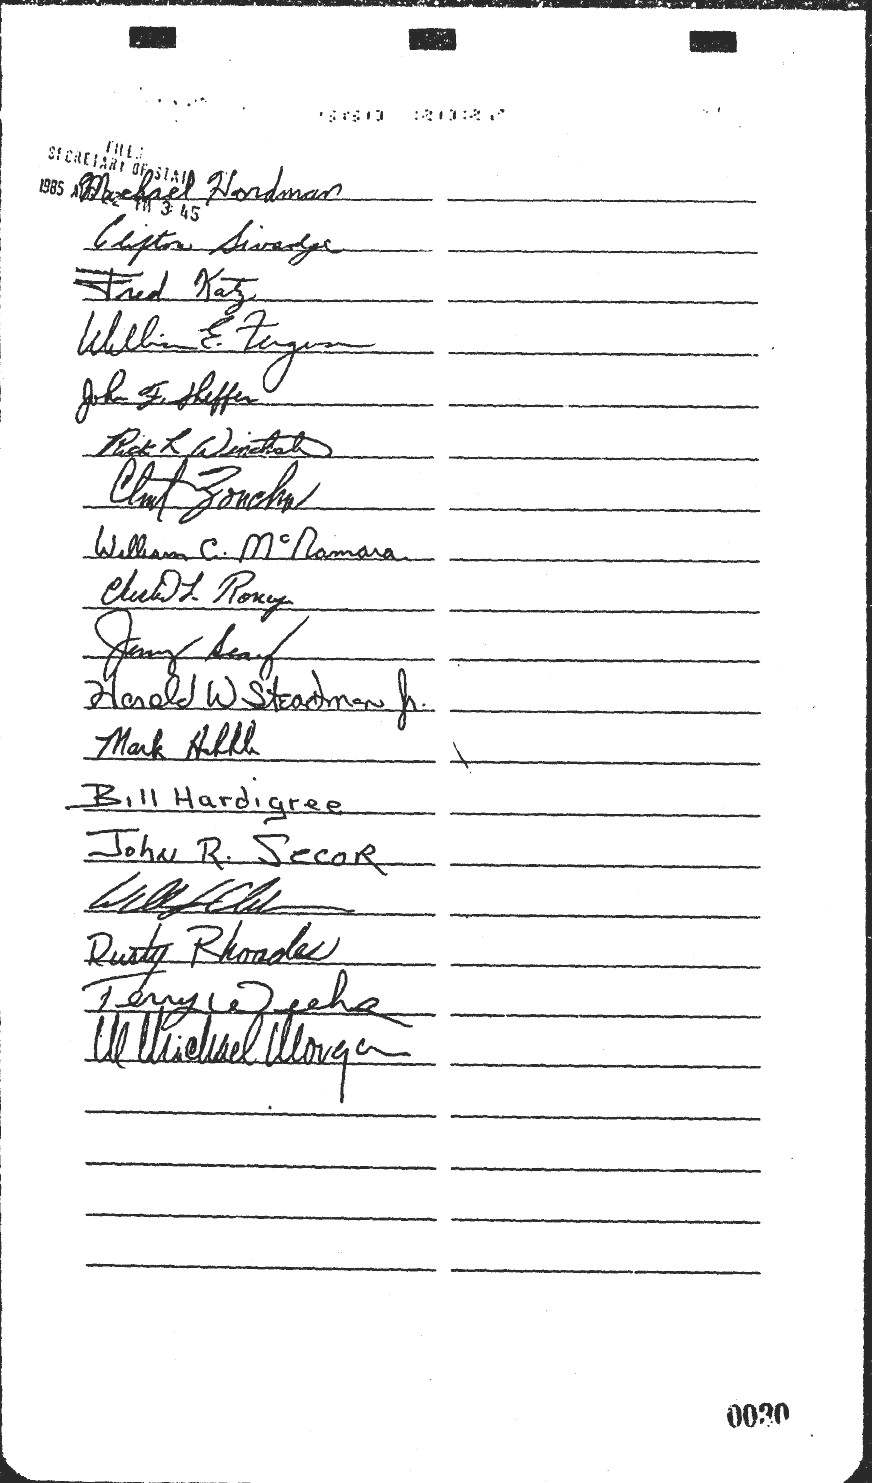 FILED
SECRETARY OF STATE
1985 PM 3 45
Michael Hordman
Clifton
Fred Katz
William E. Ferguson
John F. Sheffer
Rick L
Clint
William C. McNamara
L. Roney
Jerry
Harold W Steadman Jr.
Mark
Bill Hardigree
John R. Secor
Rusty Rhoades
Terry Weeks
W Michael Morgan
0030